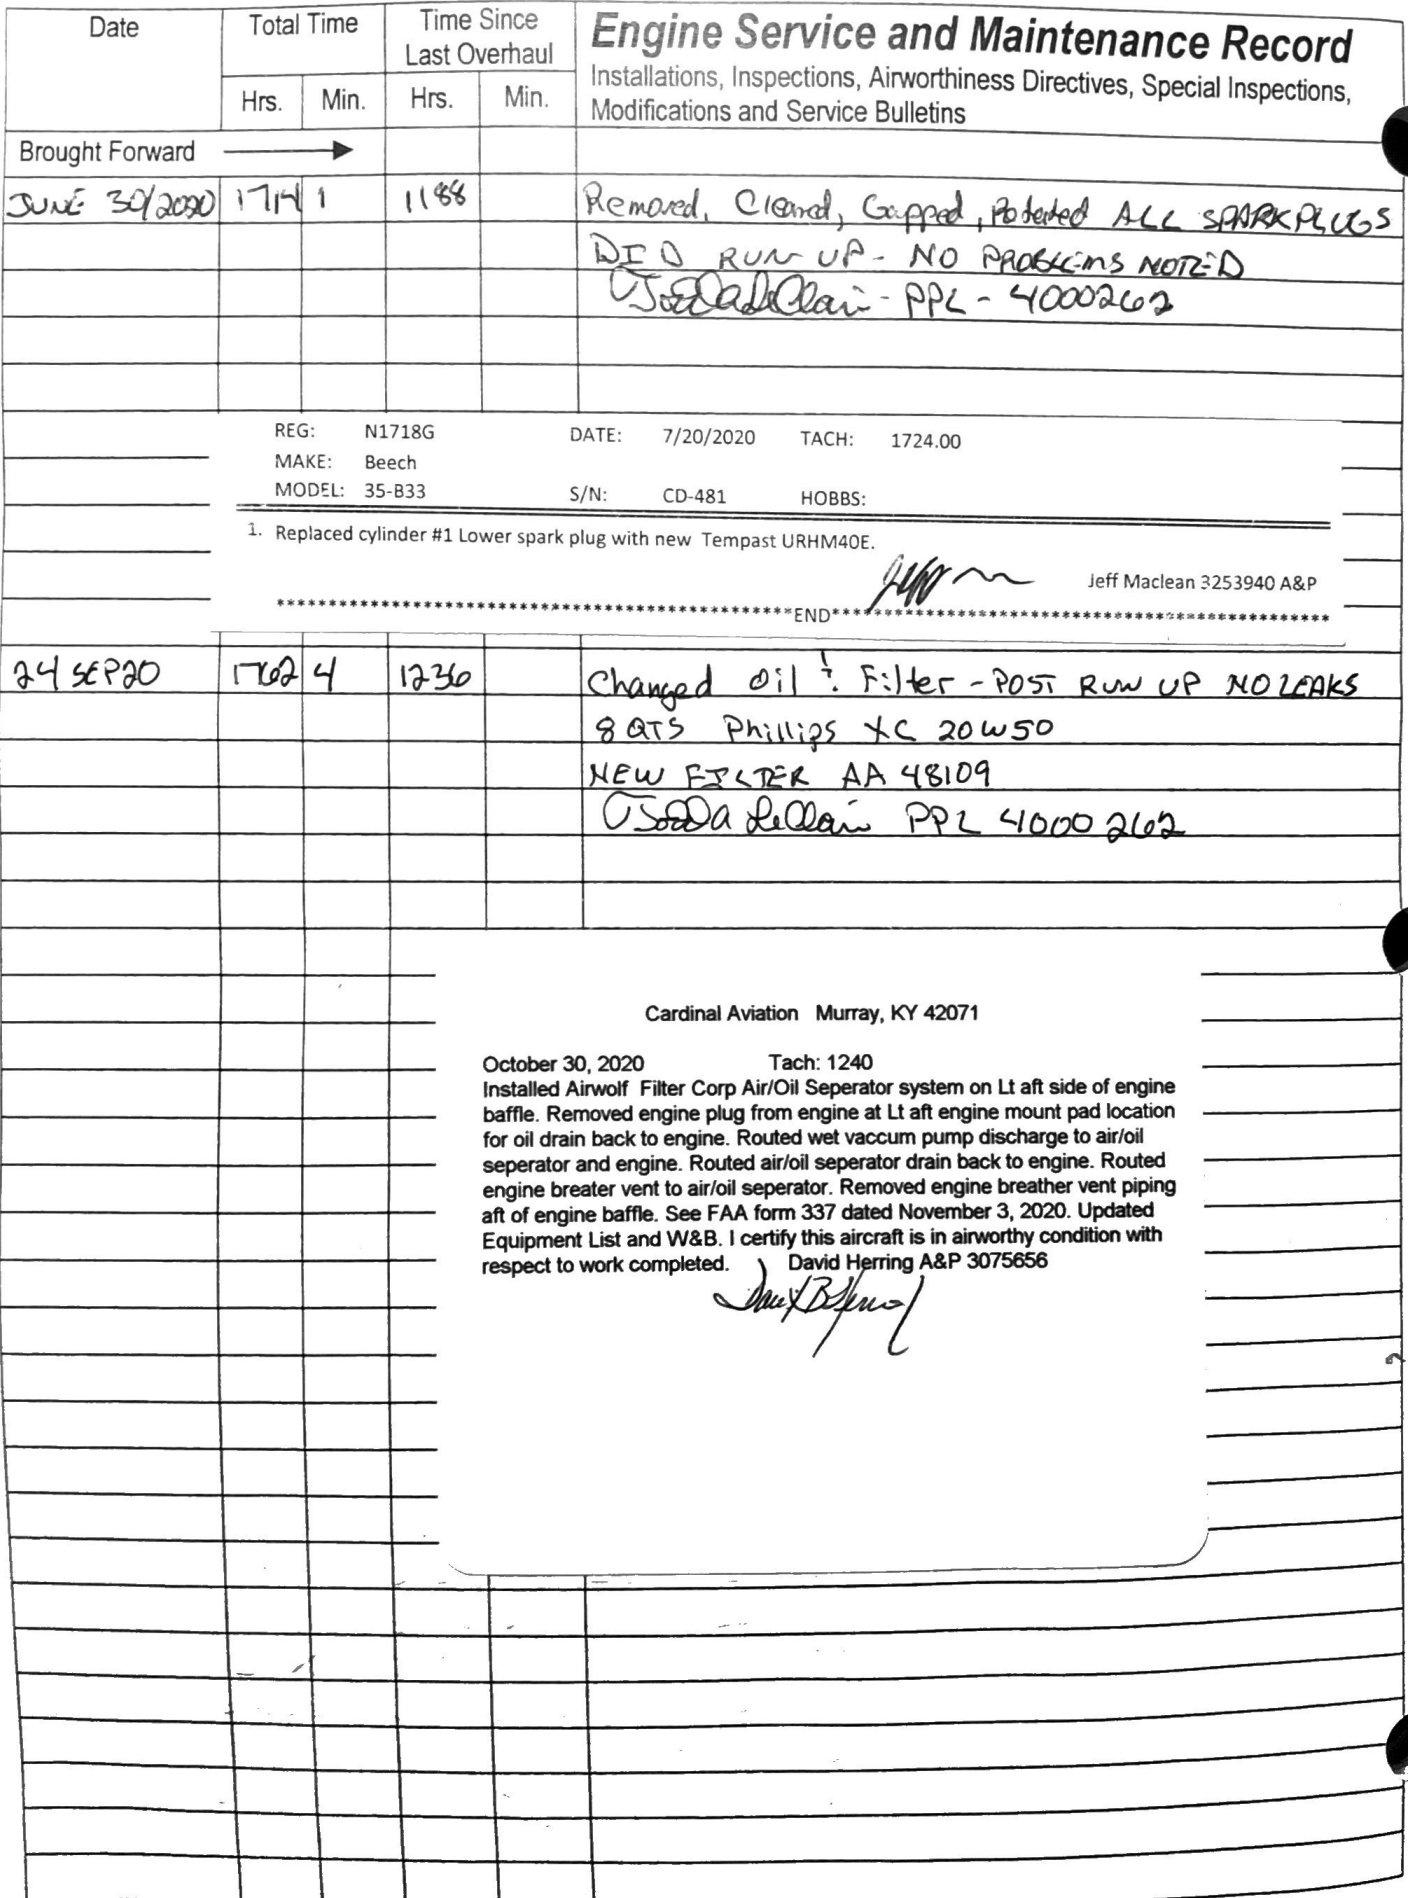 Date Total Time Time Since Last Overhaul Engine Service and Maintenance Record
Hrs. Min. Hrs. Min. Installations, Inspections, Airworthiness Directives, Special Inspections,
Modifications and Service Bulletins
Brought Forward
JUNE 30/2020 1714 1 1188 Removed, Cleaned, Gapped, Rotated ALL SPARK PLUGS
DID RUN UP - NO PROBLEMS NOTED
PPL - 4000262
REG: N1718G DATE: 7/20/2020 TACH: 1724.00
MAKE: Beech
MODEL: 35-B33 S/N: CD-481 HOBBS:
1. Replaced cylinder #1 Lower spark plug with new Tempast URHM40E.
Jeff Maclean 3253940 A&P
END
24 SEP20 1762 4 1236 Changed Oil & Filter - POST RUN UP NO LEAKS
8 QTS Phillips XC 20W50
NEW FILTER AA 48109
PPL 4000262
Cardinal Aviation Murray, KY 42071
October 30, 2020 Tach: 1240
Installed Airwolf Filter Corp Air/Oil Seperator system on Lt aft side of engine
baffle. Removed engine plug from engine at Lt aft engine mount pad location
for oil drain back to engine. Routed wet vaccum pump discharge to air/oil
seperator and engine. Routed air/oil seperator drain back to engine. Routed
engine breater vent to air/oil seperator. Removed engine breather vent piping
aft of engine baffle. See FAA form 337 dated November 3, 2020. Updated
Equipment List and W&B. I certify this aircraft is in airworthy condition with
respect to work completed. David Herring A&P 3075656